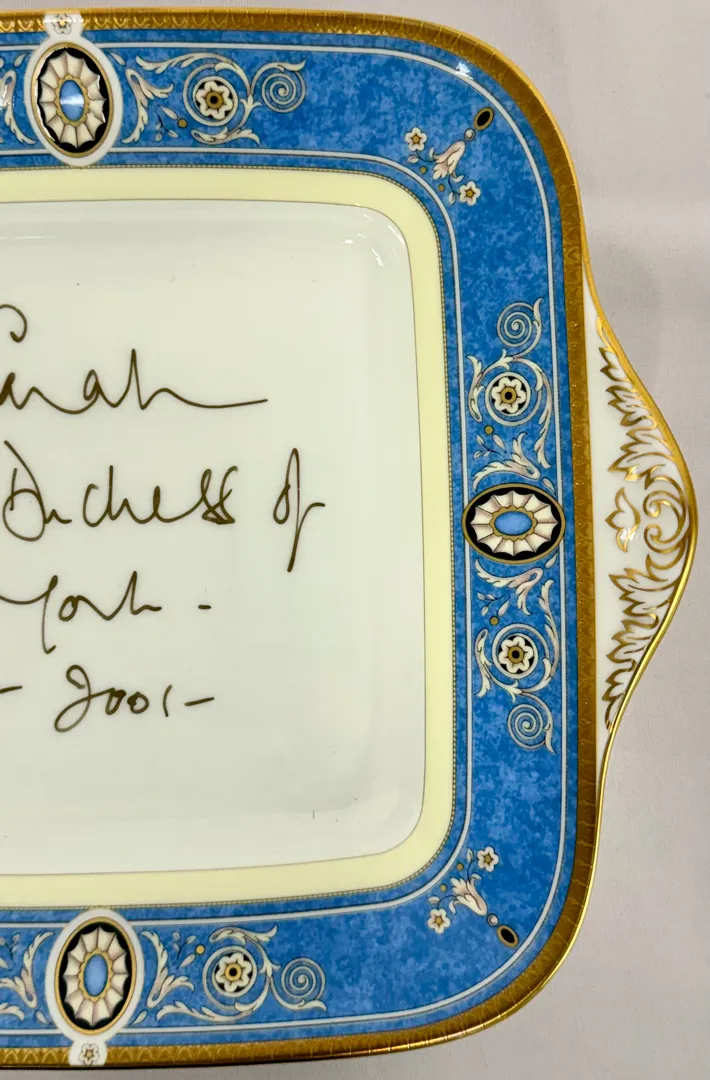 Sarah
Duchess of
York -
- 2001 -